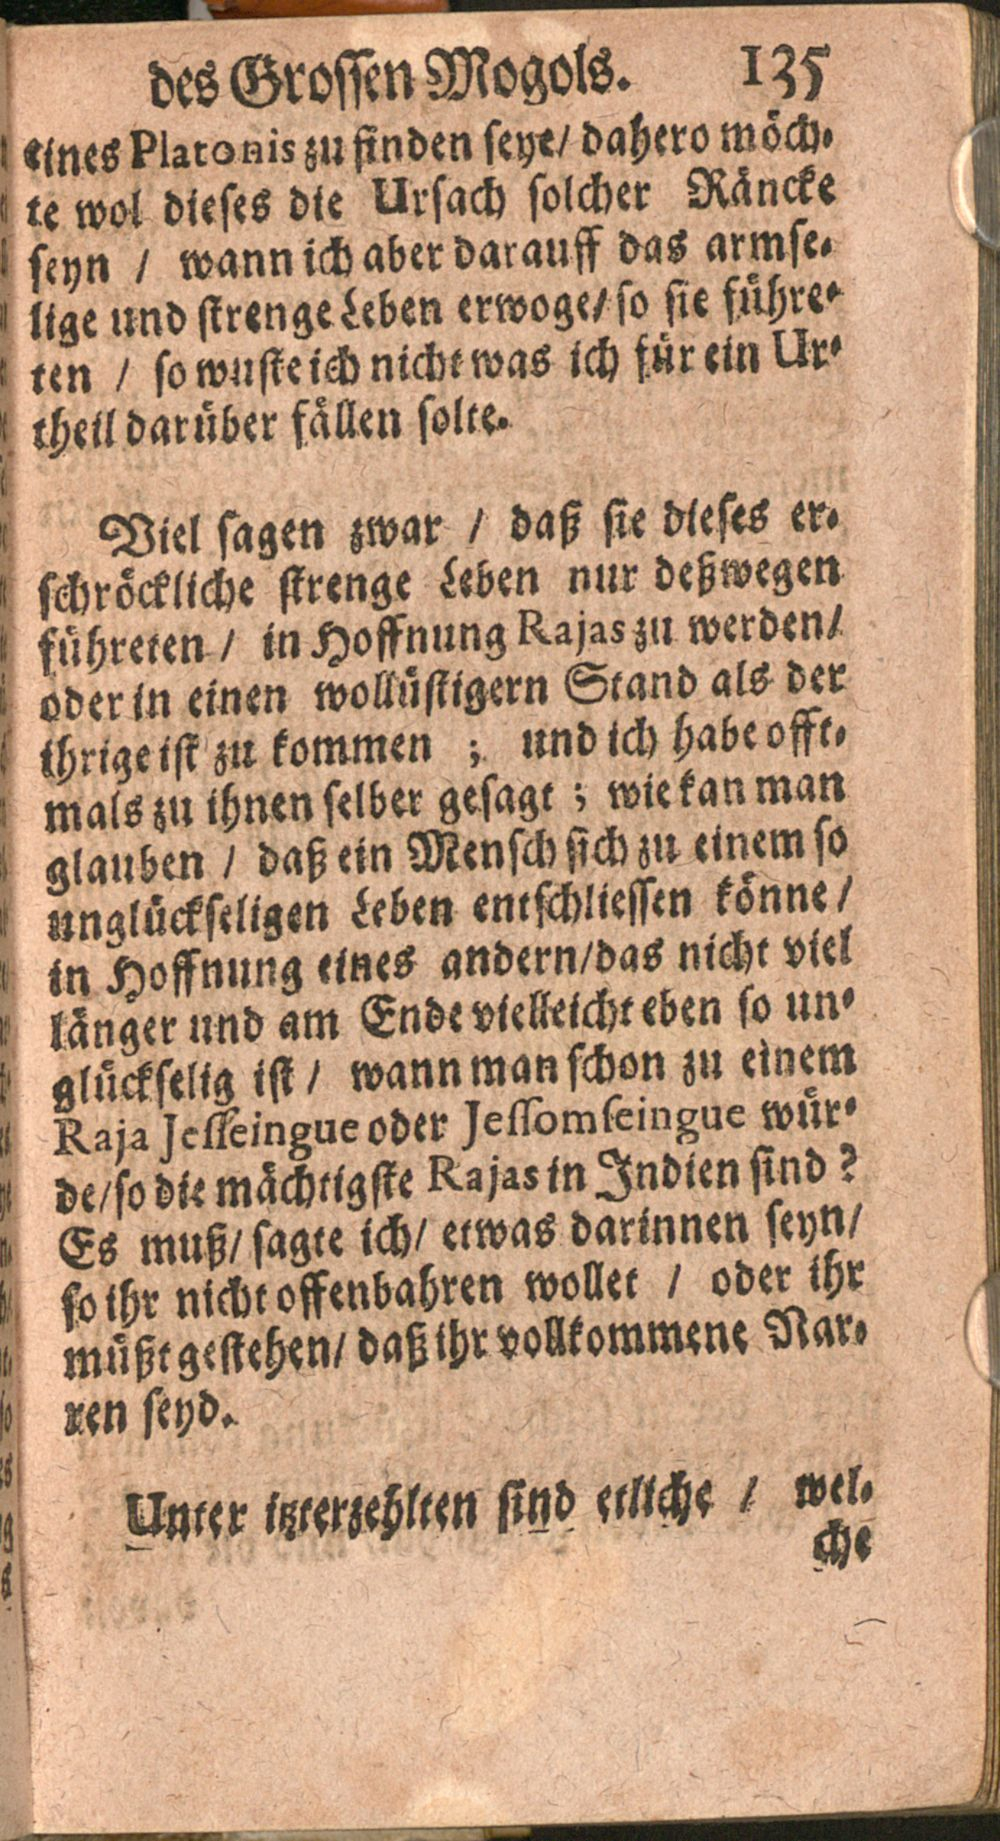 des Grossen Mogols. 135
eines Platonis zu finden seye/ dahero möch-
te wol dieses die Ursach solcher Räncke
seyn / wann ich aber darauff das armse-
lige und strenge Leben erwoge/ so sie führe-
ten / so wuste ich nicht was ich für ein Ur-
theil darüber fällen solte.
Viel sagen zwar / daß sie dieses er-
schröckliche strenge Leben nur deßwegen
führeten / in Hoffnung Rajas zu werden/
oder in einen wollüstigern Stand als der
ihrige ist zu kommen ; und ich habe offt-
mals zu ihnen selber gesagt ; wie kan man
glauben / daß ein Mensch sich zu einem so
unglückseligen Leben entschliessen könne/
in Hoffnung eines andern/das nicht viel
länger und am Ende vielleicht eben so un-
glückselig ist / wann man schon zu einem
Raja Jesseingue oder Jessomseingue wür-
de/so die mächtigste Rajas in Indien sind ?
Es muß/ sagte ich/ etwas darinnen seyn/
so ihr nicht offenbahren wollet / oder ihr
müßt gestehen/ daß ihr vollkommene Nar-
ren seyd.
Unter itzterzehlten sind etliche / wel-
che